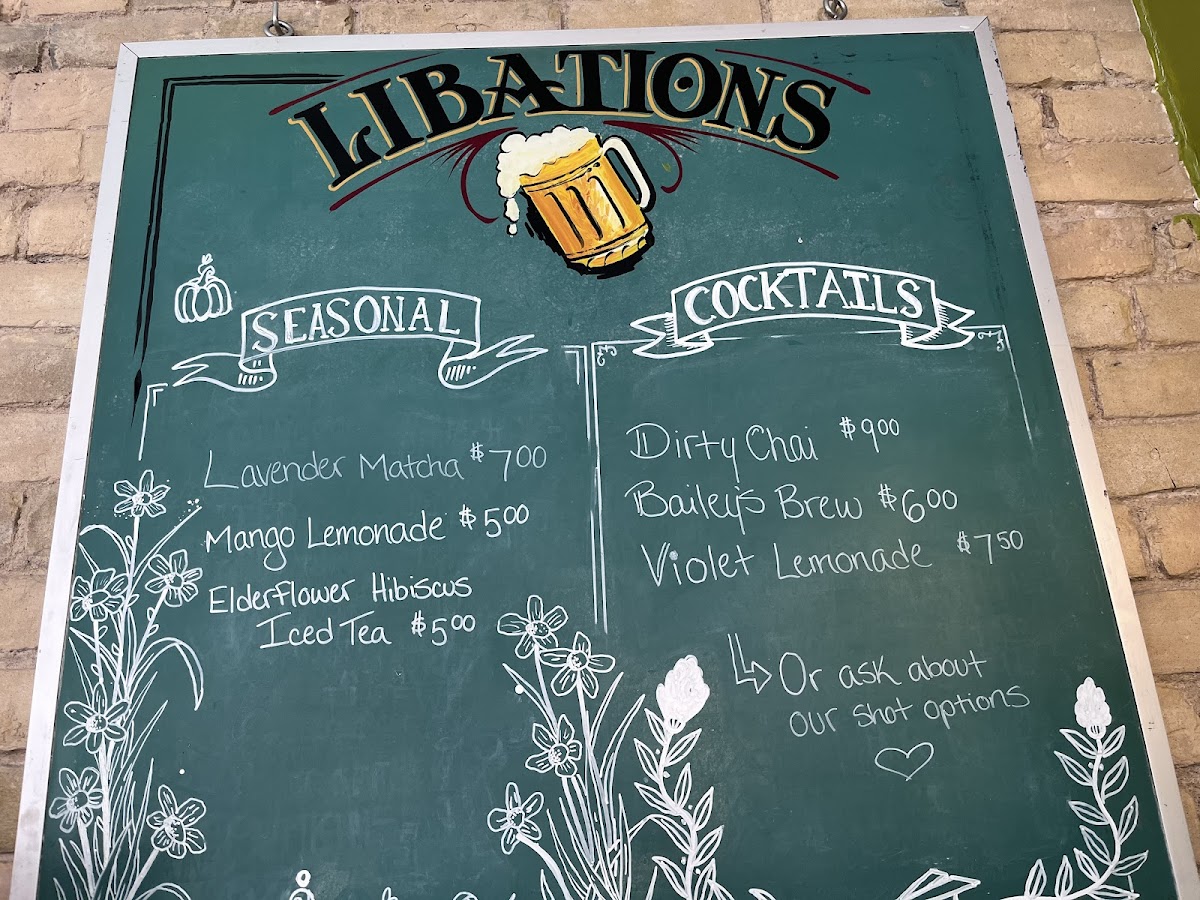 LIBATIONS
SEASONAL
Lavender Matcha $7.00
Mango Lemonade $5.00
Elderflower Hibiscus
Iced Tea $5.00
COCKTAILS
Dirty Chai $9.00
Bailey's Brew $6.00
Violet Lemonade $7.50
Or ask about
our shot options